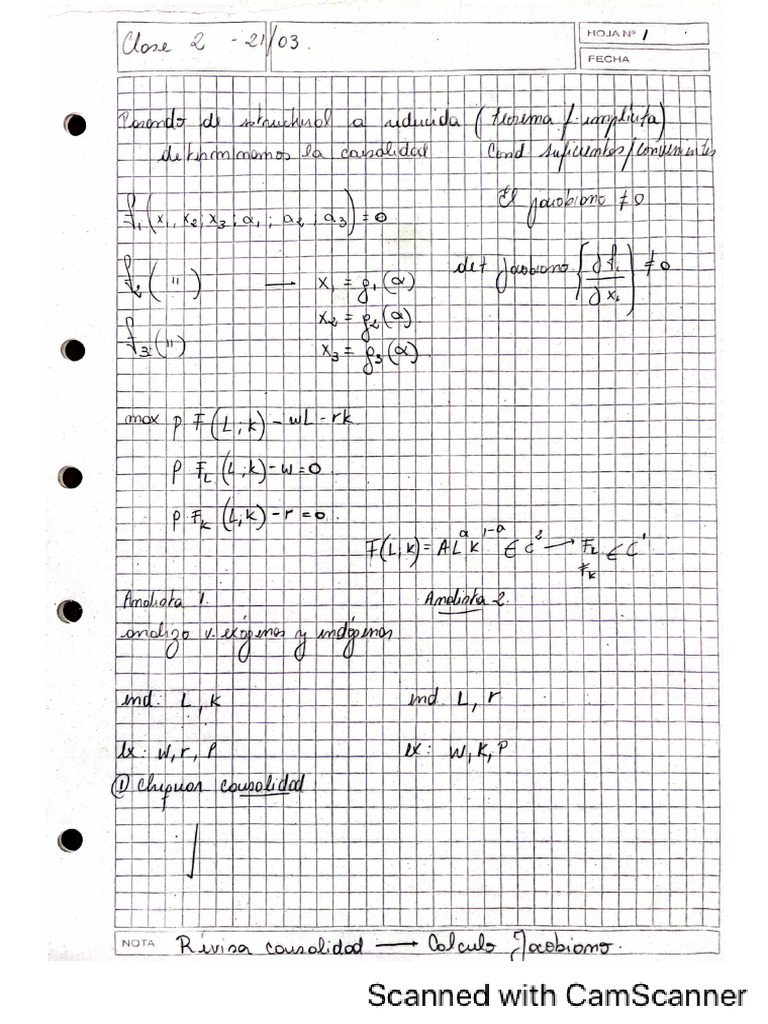 Clase 2 - 21/03.
HOJA Nº 1
FECHA
Pasando de estructural a reducida (teorema f. implícita)
determinamos la causalidad Cond suficientes/convenientes
El jacobiano ≠ 0
f₁(x₁, x₂; x₃; α₁; α₂; α₃) = 0
f₂( " ) → x₁ = g₁(α) det jacobiano [∂fᵢ/∂xᵢ] ≠ 0
x₂ = g₂(α)
f₃( " ) x₃ = g₃(α)
max p F(L; k) - wL - rk
p F_L (L; k) - w = 0
p F_k (L, k) - r = 0.
F(L; k) = A L^α k^(1-α) ∈ C² → F_L F_k ∈ C¹
Analista 1. Analista 2.
analizo v. exógenas y endógenas
end: L, k end. L, r
ex: w, r, P ex: w, K, P
① Chequear causalidad
NOTA Revisa causalidad → Calculo Jacobiano.
Scanned with CamScanner